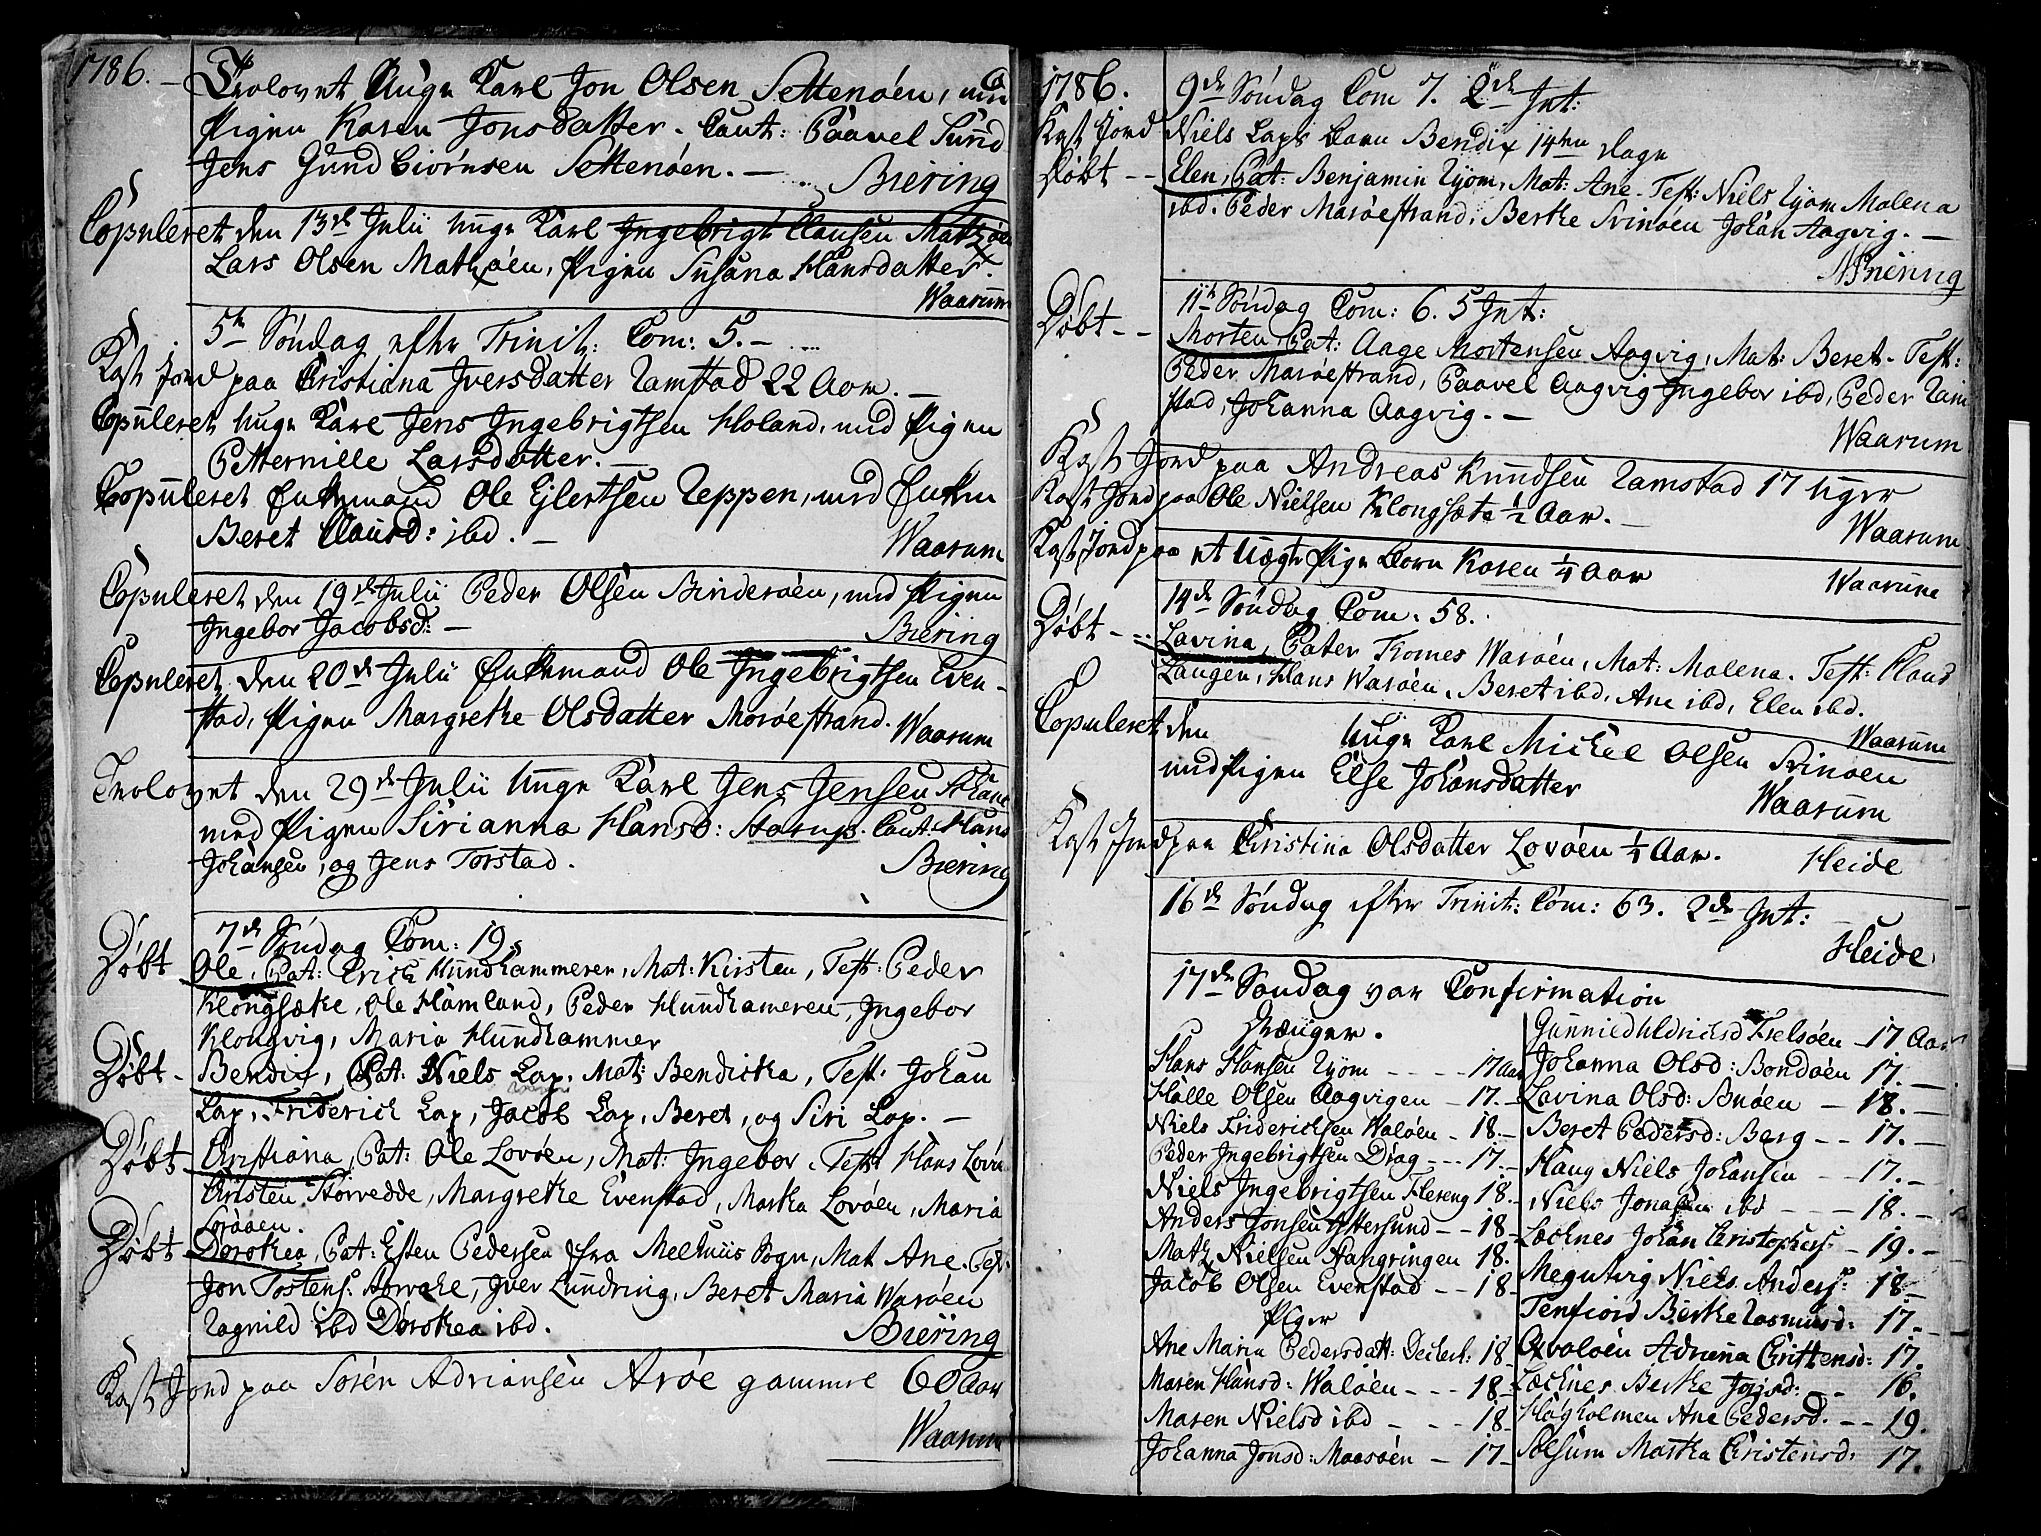 1786. — Trolovet Unge Karl Jon Olsen Settenøen, med
Pigen Karen Jonsdatter. Caut: Paavel Sund
Jens Gundbiørnsen Settenøen. —
Biering
Copuleret den 13de Julii unge Karl Ingebrigt Clausen Matzøen
Lars Olsen Matzøen, Pigen Susana Hansdatter.
Waarum
5te Søndag efter Trinit: Com: 5. —
Kast Jord paa Cristiana Iversdatter Ramstad 22 Aar. —
Copuleret unge Karl Jens Ingebrigtsen Holand, med Pigen
Petternille Larsdatter. —
Copuleret Enkemand Ole Ejlertsen Reppen, med Enken
Beret Clausd: ibd. —
Waarum
Copuleret den 19de Julii Peder Olsen Binderøen, med Pigen
Ingebor Jacobsd: —
Biering
Copuleret den 20de Julii Enkemand Ole Ingebrigtsen Even-
stad, Pigen Margrethe Olsdatter Morøestrand.
Waarum
Trolovet den 29de Julii unge Karl Jens Jensen
med Pigen Sirianna Hansd: Aarup. Caut: Hans
Johansen, og Jens Torstad.
Biering
7de Søndag Com: 19.
Døbt Ole, Pat: Erich Hundhammeren, Mat: Kirsten, Test: Peder
Klongsæthe, Ole Hamland, Peder Hundhameren, Ingebor
Klongvig, Maria Hundhammer
Døbt - Bendix, Pat: Niels Lap, Mat: Bendicka, Test: Johan
Lap, Friderich Lap, Jacob Lap, Beret, og Siri Lap. —
Døbt Christiana, Pat: Ole Lovøen, Mat: Ingebor. Test: Hans Lovøe
Kirsten Størvedde, Margrethe Evenstad, Martha Lovøen, Maria
Døbt Dorothea, Pat: Esten Pedersen fra Melhuus Sogn, Mat Ane. Test:
Jon Tostens: , Iver Lundring, Beret Maria Warøen
Ragnild ibd Dorothea ibd.
Biering
Kast Jord paa Søren Adriansen Arøe gammel 60 Aar
Waarum
1786. 9de Søndag Com 7. 2de Int:
Kast Jord Niels Laps Barn Bendix 14ten Dage
Døbt - - Elen, Pat: Benjamin Ryom, Mat: Ane. Test: Niels Ryom Malena
ibd. Peder Marøestrand, Berthe Svinøen Johan Aagvig. —
Biering
11te Søndag Com: 6. 5 Int:
Døbt - - Morten Pat: Aage Mortensen Aagvig, Mat: Beret. Test:
Peder Marøestrand, Paavel Aagvig Ingebor ibd, Peder Ram
stad, Johanna Aagvig. —
Waarum
Kast Jord paa Andreas Knudsen Ramstad 17 Uger
Kast Jord paa Ole Nielsen Klongsæte ½ Aar. —
Waarum
Kast Jord paa et Uægte Pige Barn Karen ¼ Aar
Waarum
14de Søndag Com: 58.
Døbt - - Lavina, Pater Thomes Warøen, Mat: Malena. Test: Hans
Laugen, Hans Warøen, Beret ibd, Ane ibd, Elen ibd.
Waarum
Copuleret den Unge Karl Mickel Olsen Svinøen
med Pigen Else Johansdatter
Waarum
Kast Jord paa Cristina Olsdatter Lovøen ¼ Aar.
Heide
16de Søndag efter Trinit: Com: 63. 2de Int:
Heide
17de Søndag var Confirmation
Drenger.
Hans Hansen Ryom - - - - 17 Aar
Halle Olsen Aagvigen - 17. -
Niels Friderichsen Waløen - 18. -
Peder Ingebrigtsen Drag - - - 17. -
Niels Ingebrigtsen Flereng 18. -
Anders Jonsen Ottersund - - 18.
Matz Nielsen Nangringen 18.
Jacob Olsen Evenstad - - 18 -
Piger
Ane Maria Pedersdatt: 18
Maren Hansd: Waløen - - - 18 -
Maren Nielsd ibd - - - - 18
Johanna Jonsd: Maasøen - 17 -
Gunnild Uldrichsd Frelsøen - 17 Aar
Johanna Olsd: Bondøen 17. -
Lavina Olsd: Buøen - 18. -
Beret Pedersd: Berg - - 17. -
Haug Niels Johansen - - 17. -
Niels Jonasen ibd - - - 18. -
Lecknes Johan Christophers: - 19. -
Niels Anders: 18 -
Tenfiord Berthe Rasmusd: 17. -
Qvaløen Adriana Crittensd: 17.
Lecknes Berthe Jonsd: - - 16.
Høgholmen Ane Pedersd. - - 19.
Solsum Martha Cristensd: 17.